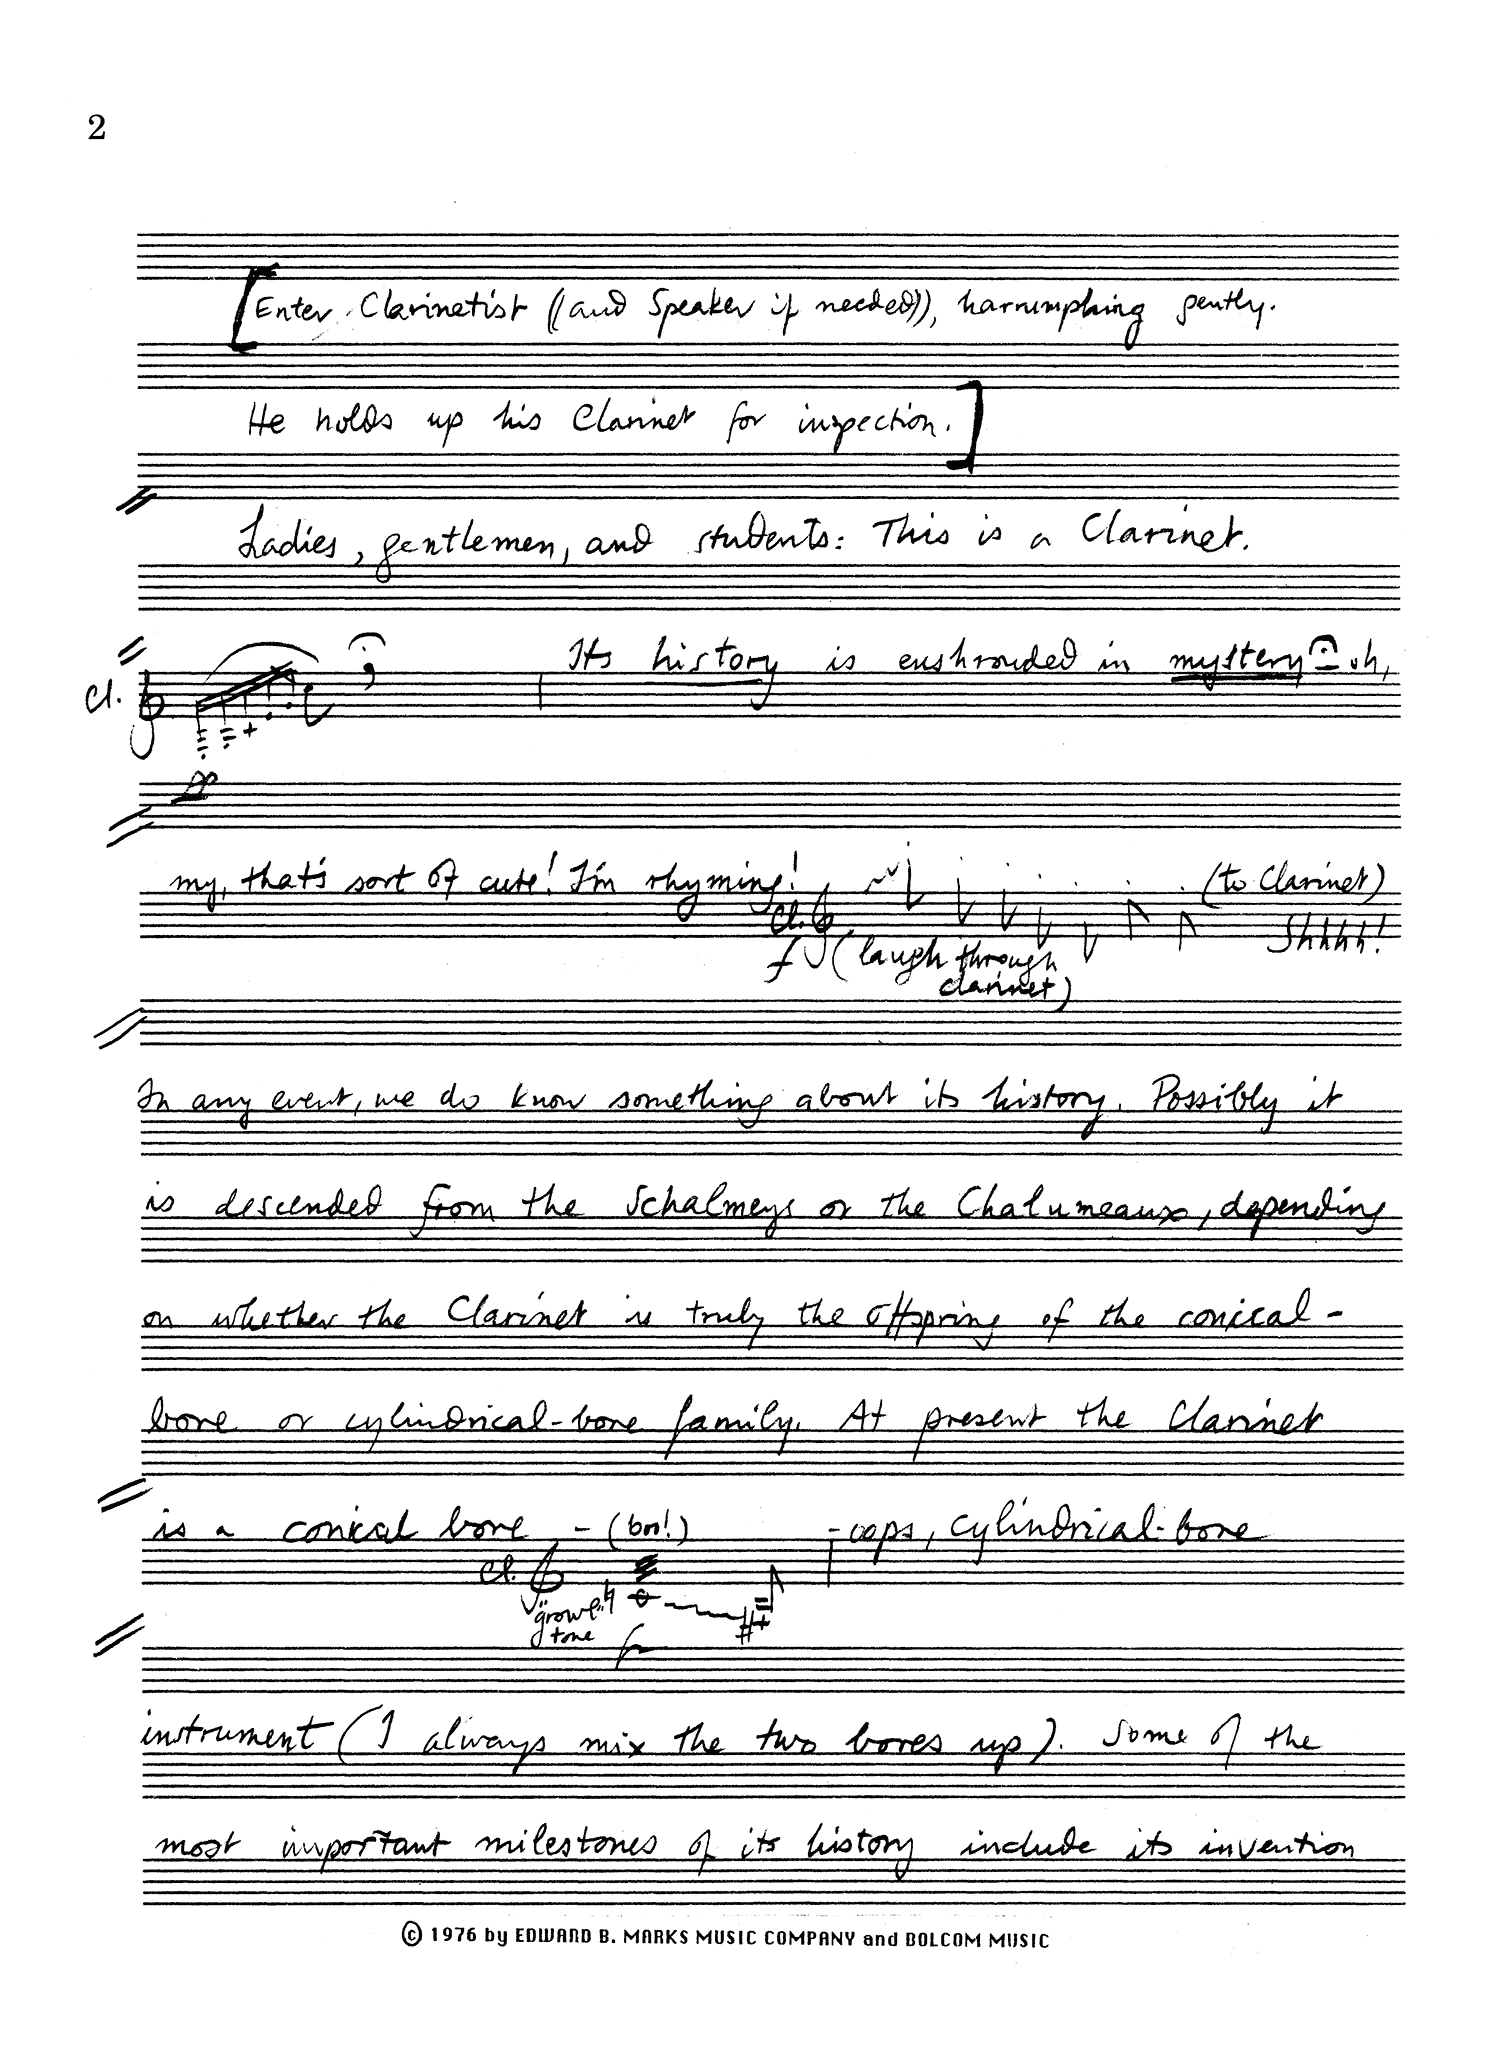 2
[Enter Clarinetist ((and Speaker if needed)), harrumphing gently.
He holds up his Clarinet for inspection.]
Ladies, gentlemen, and students: This is a Clarinet.
Its history is enshrouded in mystery - oh,
Cl.
my, that's sort of cute! I'm rhyming! (to Clarinet)
Cl. Shhhh!
f (laugh through
clarinet)
In any event, we do know something about its history. Possibly it
is descended from the Schalmeys or the Chalumeaux, depending
on whether the Clarinet is truly the offspring of the conical-
bore or cylindrical-bore family. At present the Clarinet
is a conical bore - (boo!) - oops, cylindrical-bore
Cl.
"growl"
tone
instrument (I always mix the two bores up). Some of the
most important milestones of its history include its invention
© 1976 by EDWARD B. MARKS MUSIC COMPANY and BOLCOM MUSIC